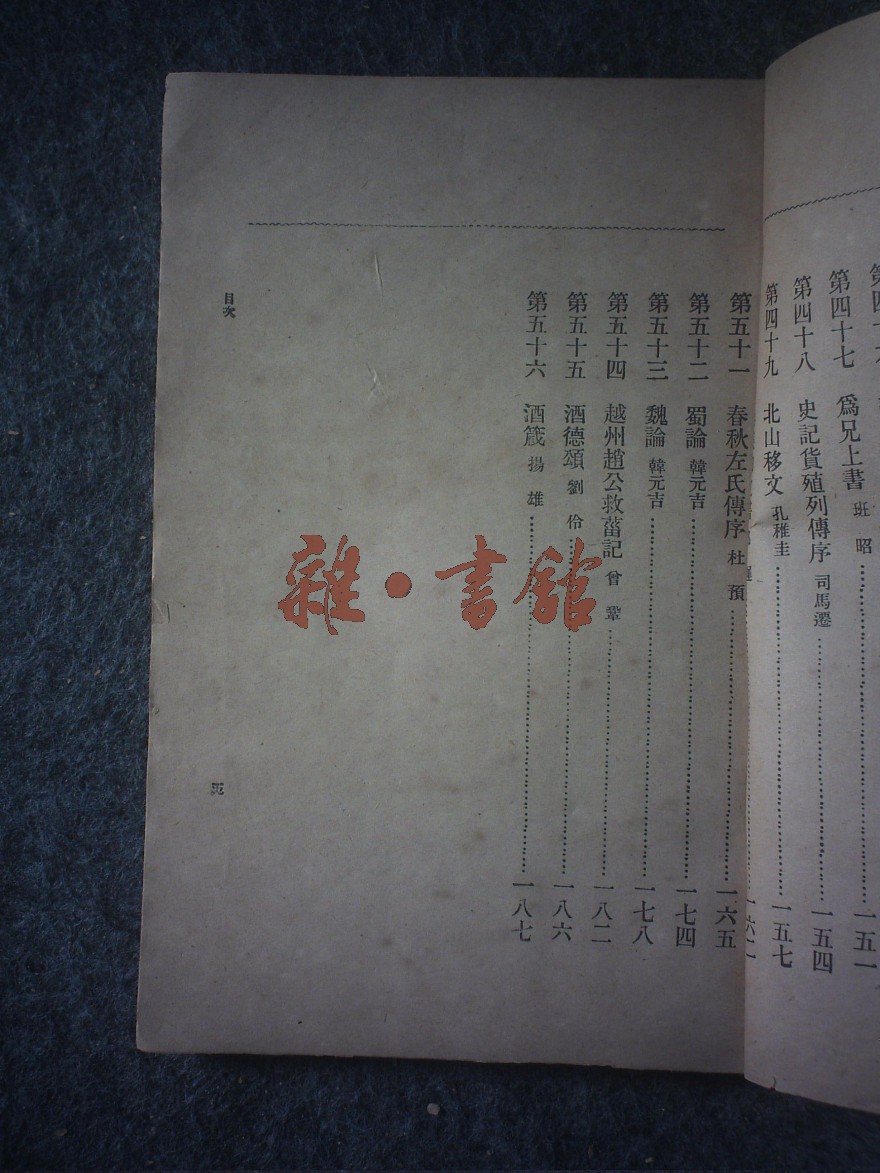 第四十七　為兄上書　班昭……一五一
第四十八　史記貨殖列傳序　司馬遷……一五四
第四十九　北山移文　孔稚圭……一五七
第五十一　春秋左氏傳序　杜預……一六五
第五十二　蜀論　韓元吉……一七四
第五十三　魏論　韓元吉……一七八
第五十四　越州趙公救菑記　曾鞏……一八二
第五十五　酒德頌　劉伶……一八六
第五十六　酒箴　揚雄……一八七
目次
雜·書館